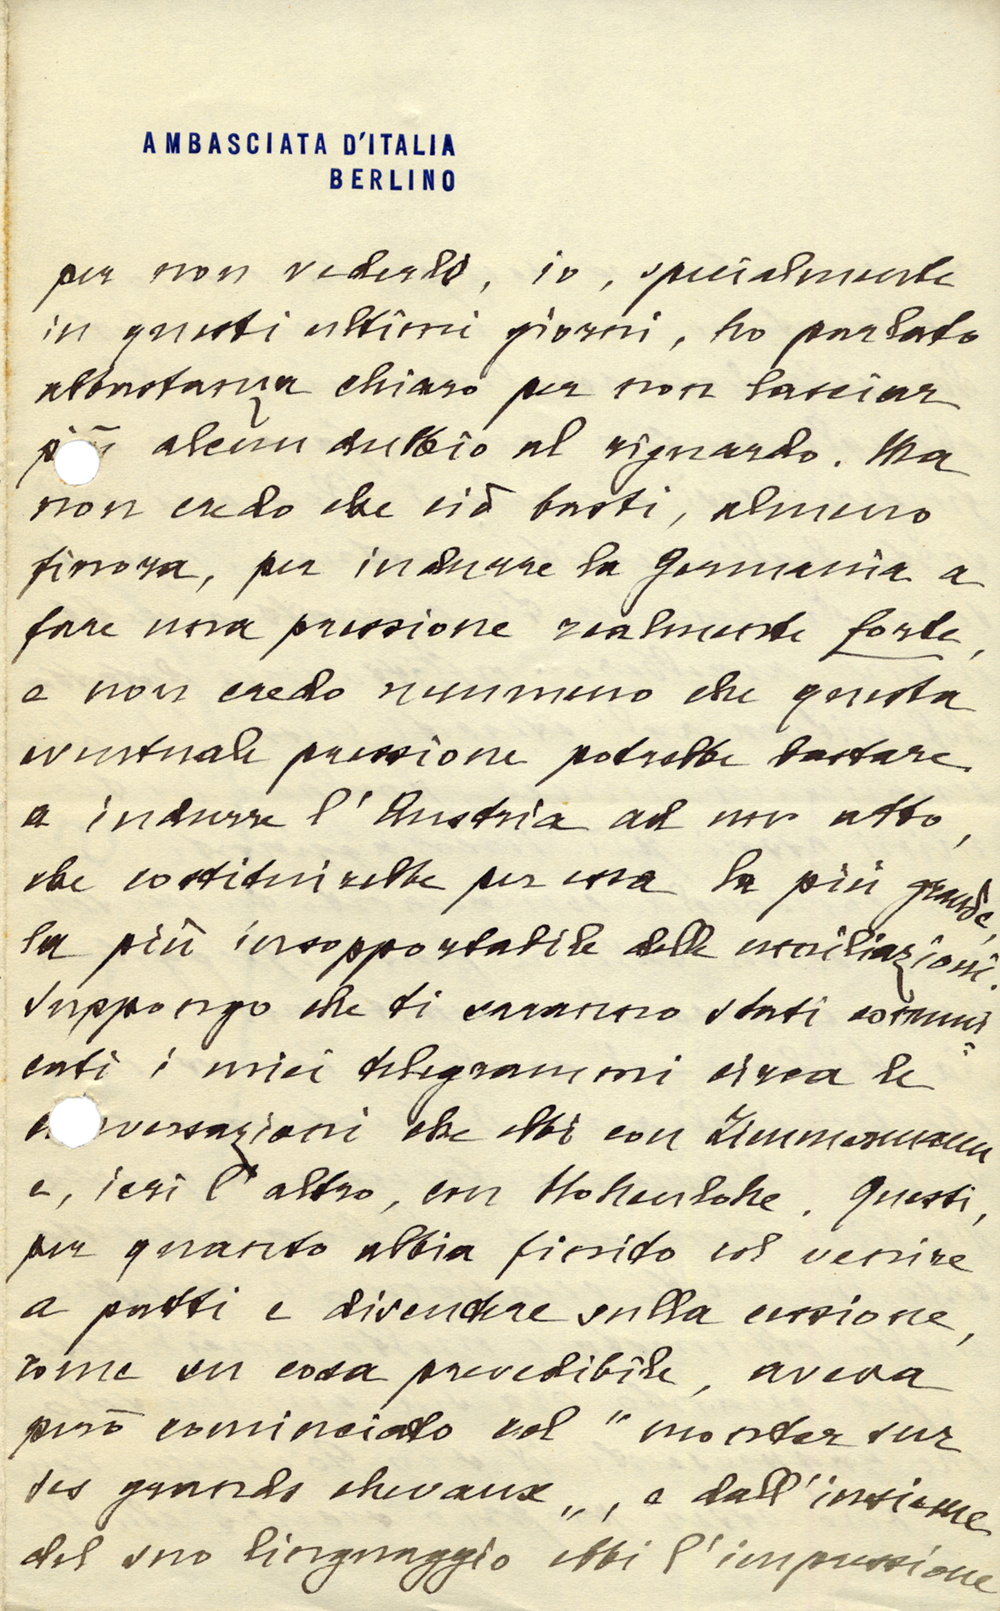 AMBASCIATA D'ITALIA
BERLINO
per non vederlo, io, specialmente
in questi ultimi giorni, ho parlato
abbastanza chiaro per non lasciar
più alcun dubbio al riguardo. Ma
non credo che ciò basti, almeno
finora, per indurre la Germania a
fare una pressione realmente forte,
e non credo nemmeno che questa
eventuale pressione potrebbe bastare
a indurre l'Austria ad un atto,
che costituirebbe per essa la più grande,
la più insopportabile delle umiliazioni.
Suppongo che ti saranno stati comuni-
cati i miei telegrammi circa le
conversazioni che ebbi con Zimmermann
e, ieri l'altro, con Hohenlohe. Questi,
per quanto abbia finito col venire
a patti e discutere sulla cessione,
come su cosa prevedibile, aveva
però cominciato col "monter sur
ses grands chevaux", e dall'insieme
del suo linguaggio ebbi l'impressione